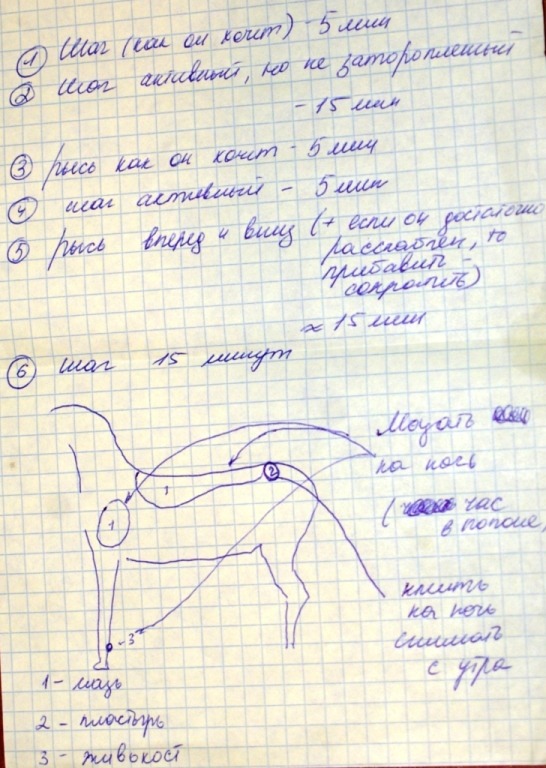 ① Шаг (как он хочет) - 5 мин
② Шаг активный, но не заторопленный
- 15 мин
③ рысь как он хочет - 5 мин
④ шаг активный - 5 мин
⑤ рысь вперед и вниз (+ если он достаточно
расслаблен, то
прибавить -
сократить)
≈ 15 мин
⑥ шаг 15 минут
Мазать
на ночь
( час
в попоне,
1
1
2
3
клеить
на ночь
снимать
с утра
1 - мазь
2 - пластырь
3 - живокост